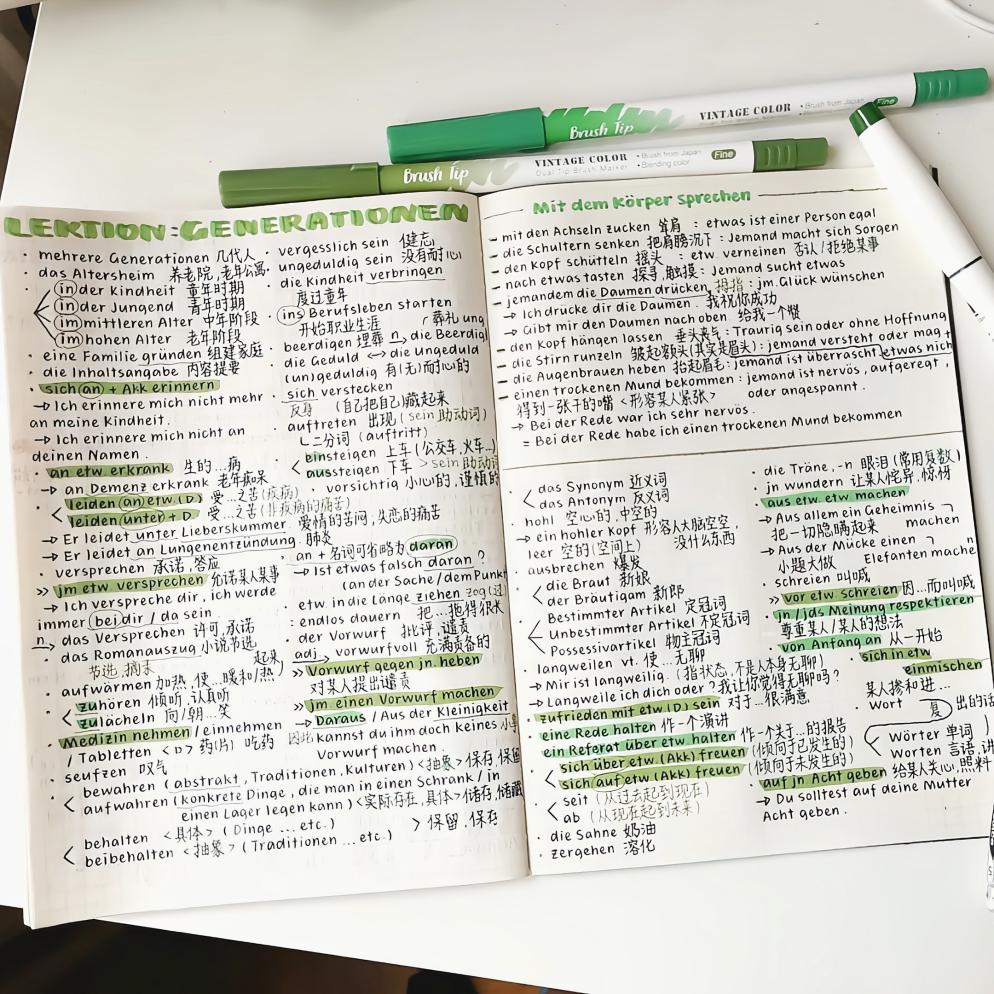 Brush Tip VINTAGE COLOR • Brush from Japan Fine
Brush Tip VINTAGE COLOR • Brush from Japan Fine
Dual Tip Brush Marker • Blending color
LEKTION:GENERATIONEN
· mehrere Generationen 几代人
· das Altersheim 养老院,老年公寓
in der Kindheit 童年时期
in der Jungend 青年时期
im mittleren Alter 中年阶段
im hohen Alter 老年阶段
· eine Familie gründen 组建家庭
· die Inhaltsangabe 内容提要
· sich an + Akk erinnern
→ Ich erinnere mich nicht mehr
an meine Kindheit.
→ Ich erinnere mich nicht an
deinen Namen.
· an etw erkrank 生的...病
→ an Demenz erkrank 老年痴呆
leiden an etw.(D) 受...之苦(疾病)
leiden unter + D 受...之苦(非疾病的痛苦)
→ Er leidet unter Lieberskummer 爱情的苦闷,失恋的痛苦
→ Er leidet an Lungenentzündung. 肺炎
· versprechen 承诺,答应
» jm etw versprechen 允诺某人某事
→ Ich verspreche dir, ich werde
immer bei dir / da sein
n. → das Versprechen 许可,承诺
· das Romanauszug 小说节选
节选,摘末
· aufwärmen 加热,使...暖和/热起来)
zuhören 倾听,认真听
zulächeln 向/朝...笑
· Medizin nehmen / einnehmen
/ Tabletten <D> 药(片) 吃药
· seufzen 叹气
bewahren (abstrakt, Traditionen, Kulturen) <抽象> 保存,保留
aufwahren (konkrete Dinge, die man in einen Schrank / in
einen Lager legen kann) <实际存在,具体> 储存,储藏
behalten <具体> (Dinge ... etc.)
beibehalten <抽象> (Traditionen ... etc.) > 保留,保存
· vergesslich sein 健忘
· ungeduldig sein 没有耐心
· die Kindheit verbringen
度过童年
· ins Berufsleben starten
开始职业生涯
· beerdigen 埋葬 n. → die Beerdigung 葬礼
· die Geduld ↔ die Ungeduld
(un)geduldig 有(无)耐心的
· sich verstecken
反身 (自己把自己)藏起来
· auftreten 出现 (sein 助动词)
二分词 (auftritt)
einsteigen 上车 (公交车,火车...)
aussteigen 下车 > sein 助动词
· vorsichtig 小心的,谨慎的
· an + 名词可省略为 daran
→ Ist etwas falsch daran?
(an der Sache / dem Punkt
· etw in die Länge ziehen zog(过)
: endlos dauern 把...拖得很长
· der Vorwurf 批评,谴责
adj. → vorwurfvoll 充满责备的
» Vorwurf gegen jn. heben
对某人提出谴责
» jm einen Vorwurf machen
→ Daraus / Aus der Kleinigkeit
因此 kannst du ihm doch keines
Vorwurf machen.
Mit dem Körper sprechen
– mit den Achseln zucken 耸肩 : etwas ist einer Person egal
– die Schultern senken 把肩膀沉下 : Jemand macht sich Sorgen
– den Kopf schütteln 摇头 : etw. verneinen 否认/拒绝某事
– nach etwas tasten 探寻,触摸 : Jemand sucht etwas
– jemandem die Daumen drücken, 拇指 : jm. Glück wünschen
→ Ich drücke dir die Daumen. 我祝你成功
→ Gibt mir den Daumen nach oben 给我一个赞
– den Kopf hängen lassen 垂头丧气 : Traurig sein oder ohne Hoffnung
– die Stirn runzeln 皱起额头(其实是眉头) : jemand versteht oder mag
– die Augenbrauen heben 抬起眉毛 : jemand ist überrascht etwas nich
– einen trockenen Mund bekommen : jemand ist nervös, aufgeregt,
得到一张干的嘴 <形容某人紧张> oder angespannt.
→ Bei der Rede war ich sehr nervös.
= Bei der Rede habe ich einen trockenen Mund bekommen
das Synonym 近义词
das Antonym 反义词
· hohl 空心的,中空的
→ ein hohler Kopf 形容人大脑空空,
leer 空的(空间上) 没什么东西
· ausbrechen 爆发
die Braut 新娘
der Bräutigam 新郎
Bestimmter Artikel 定冠词
Unbestimmter Artikel 不定冠词
Possessivartikel 物主冠词
· langweilen vt. 使...无聊
→ Mir ist langweilig. (指状态,不是人本身无聊)
→ Langweile ich dich oder? 我让你觉得无聊吗?
· zufrieden mit etw (D) sein 对于...很满意
· eine Rede halten 作一个演讲
· ein Referat über etw halten 作一个关于...的报告
sich über etw (Akk) freuen (倾向于已发生的)
sich auf etw (Akk) freuen (倾向于未发生的)
seit (从过去起到现在)
ab (从现在起到未来)
· die Sahne 奶油
· zergehen 溶化
· die Träne, -n 眼泪 (常用复数)
· jn wundern 让某人诧异,惊讶
· aus etw. etw machen
→ Aus allem ein Geheimnis machen
把一切隐瞒起来
→ Aus der Mücke einen Elefanten mache
小题大做
· schreien 叫喊
» vor etw schreien 因...而叫喊
· jn/jds Meinung respektieren
尊重某人/某人的想法
· von Anfang an 从一开始
· sich in etw
einmischen
某人掺和进...
· Wort 复 出的话
Wörter 单词
Worten 言语,讲
· auf jn Acht geben 给某人关心,照料
→ Du solltest auf deine Mutter
Acht geben.